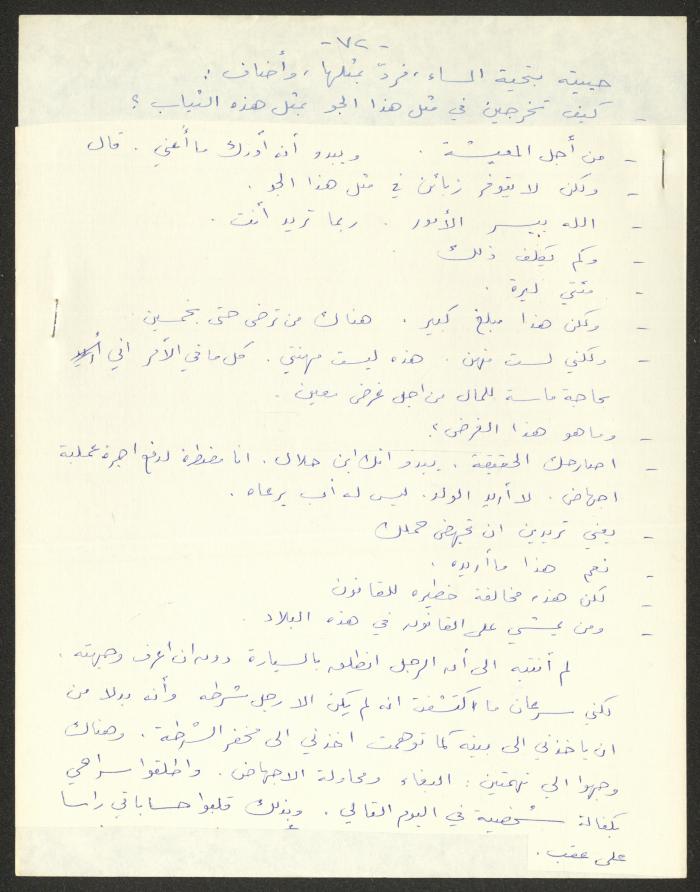 -٧٢-
حييته بتحية المساء، فردّ بمثلها، وأضاف :
- كيف تخرجين في مثل هذا الجو بمثل هذه الثياب ؟
- من أجل المعيشة . ويبدو أنه أدرك ما أعني . قال
- ولكن لا يتوفر زبائن في مثل هذا الجو .
- الله ييسر الأمور . ربما تريد أنت .
- وكم يكلف ذلك
- مئتي ليرة .
- ولكن هذا مبلغ كبير . هناك من ترضى حتى بخمسين
- ولكني لست منهن . هذه ليست مهنتي . كل ما في الأمر اني
بحاجة ماسة للمال من اجل غرض معين .
- وما هو هذا الغرض ؟
- اصارحك الحقيقة . يبدو انك ابن حلال . انا مضطرة لدفع اجرة عملية
اجهاض . لا أريد الولد . ليس له أب يرعاه .
- يعني تريدين ان تجهضي حملك
- نعم هذا ما أريده .
- لكن هذه مخالفة خطيره للقانون
- ومن يمشي على القانون في هذه البلاد .
لم أنتبه الى أن الرجل انطلق بالسيارة دون ان اعرف وجهته .
لكني سرعان ما اكتشفت انه لم يكن الا رجل شرطه وأنه بدلا من
ان ياخذني الى بيته كما توهمت اخذني الى مخفر الشرطة . وهناك
وجهوا الي تهمتين : البغاء ومحاولة الاجهاض . واطلقوا سراحي
بكفالة شخصية في اليوم التالي . وبذلك قلبوا حساباتي راسا
على عقب .